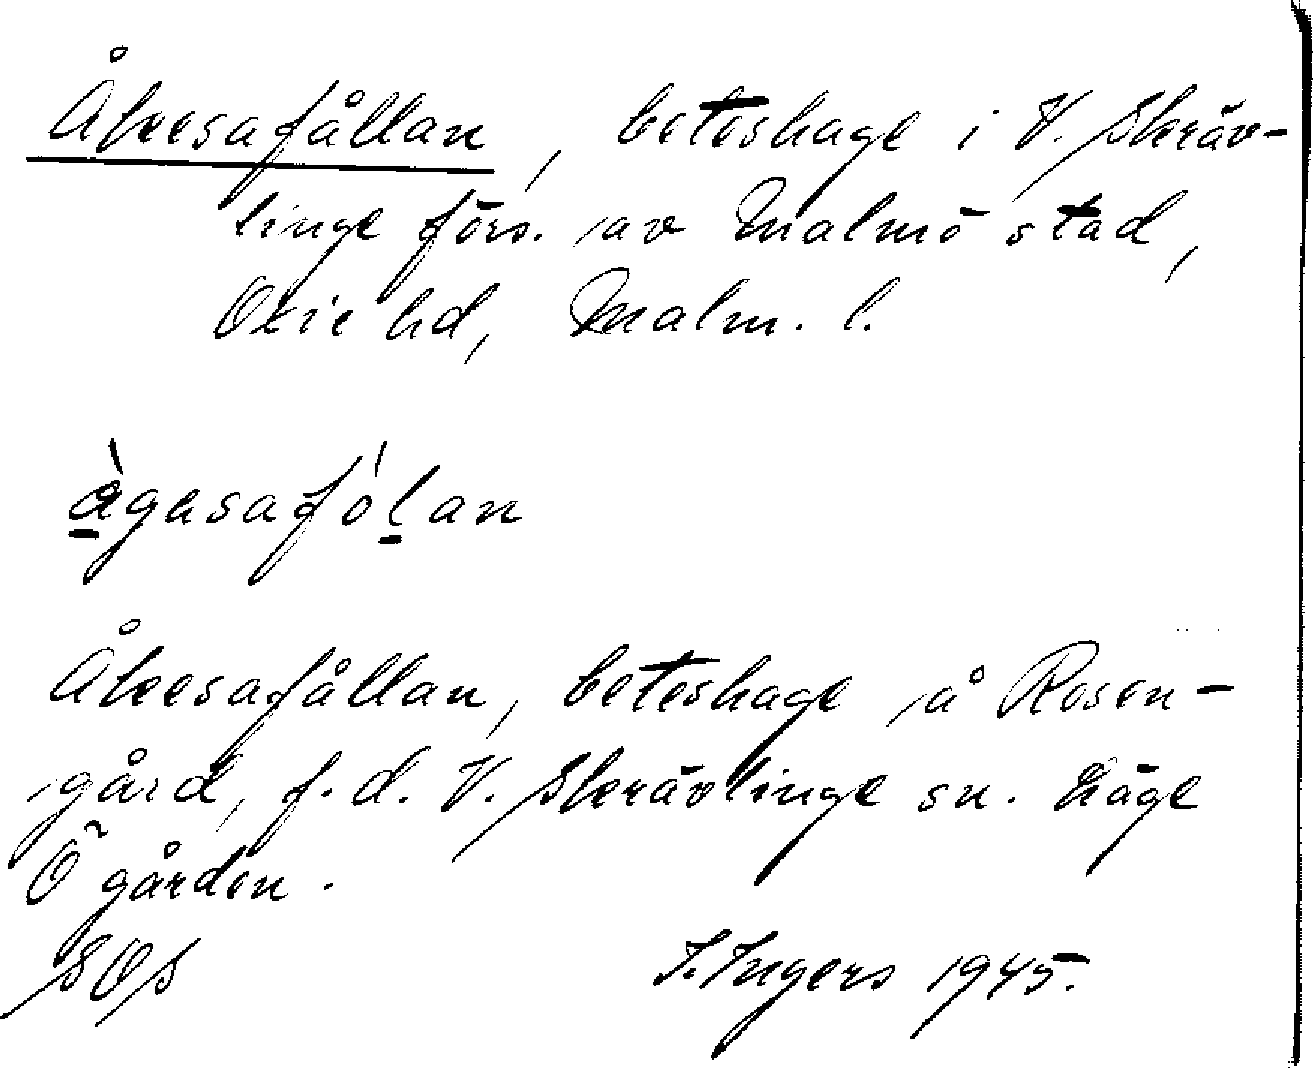 Åkesafållan, beteshage i V. Skräv-
linge förs. av Malmö stad,
Oxie hd, Malm. l.
àgasafólan
Åkesafållan, beteshage å Rosen-
gård, f.d. V. Skrävlinge sn. Läge
Ö gården.
SOS I. Ingers 1945.